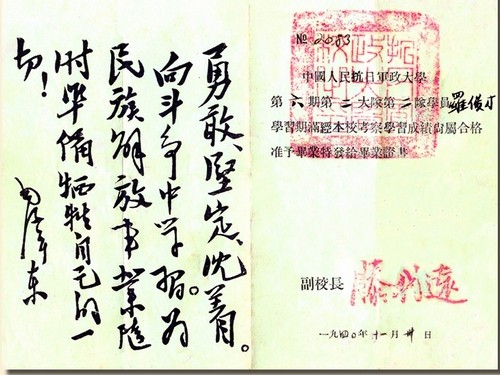 勇敢、堅定、沈着。
向斗争中学習。为
民族解放事業隨
时準備牺牲自己的一
切！
毛泽东
№
中國人民抗日軍政大學
第六期第二大隊第二隊學員羅俊才
學習期滿經本校考察學習成績尚屬合格
准予畢業特發給畢業證書
副校長 滕代遠
一九四〇年十一月卅日